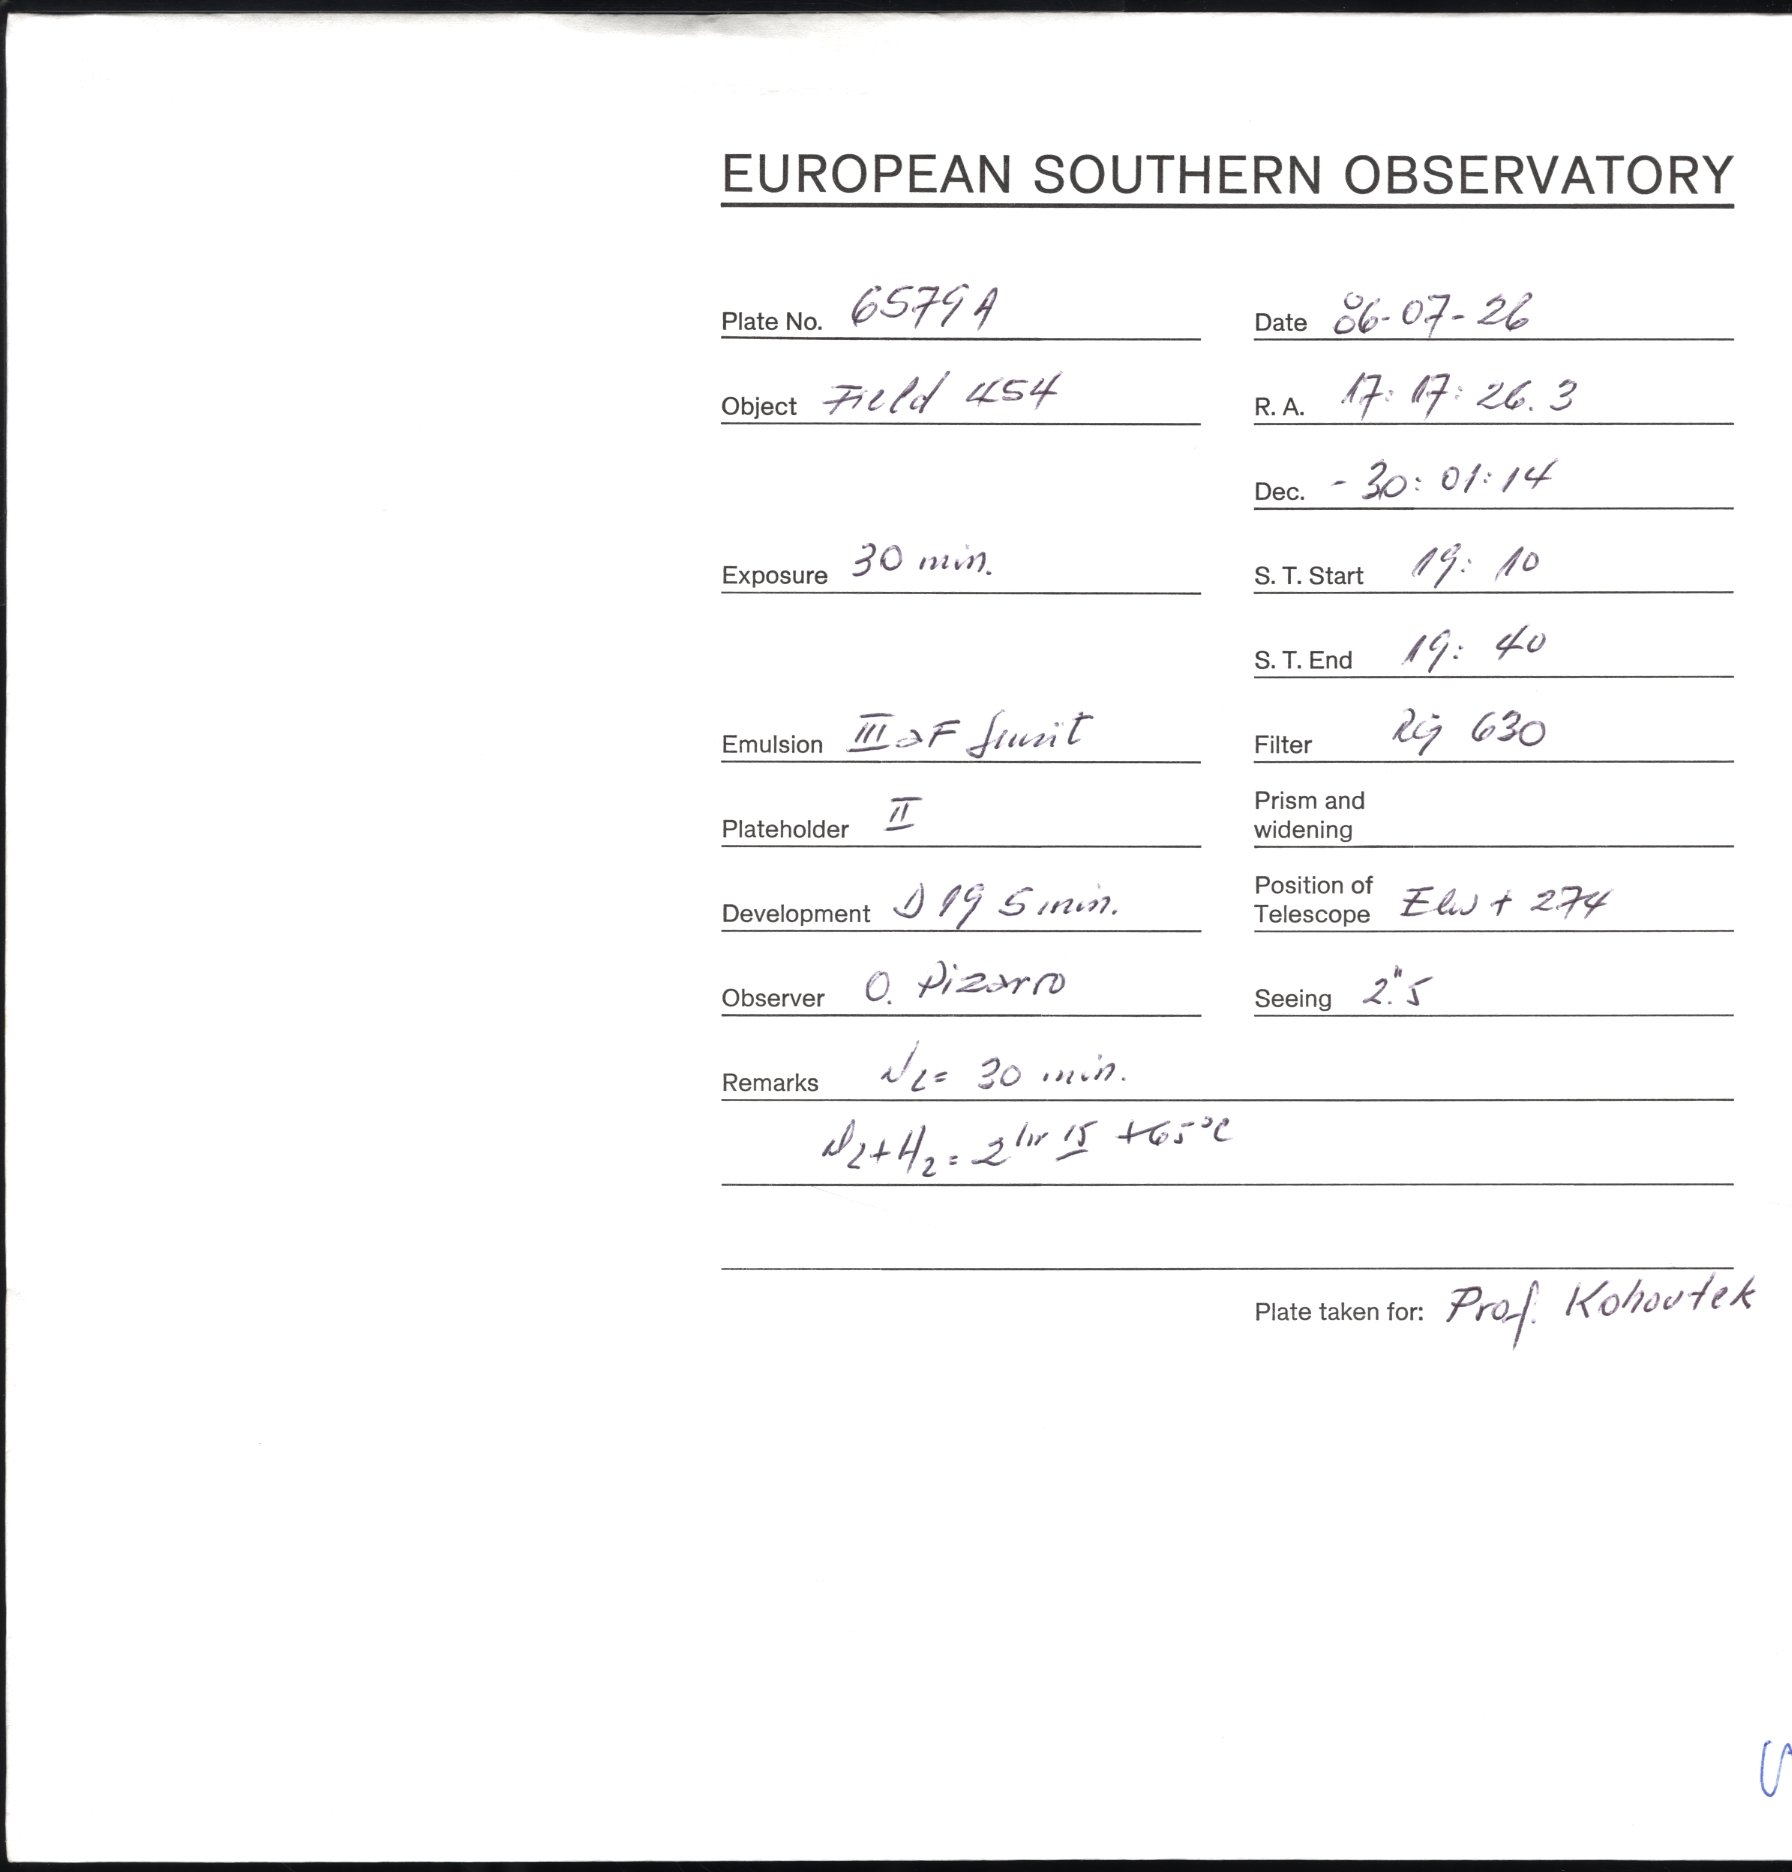 EUROPEAN SOUTHERN OBSERVATORY
Plate No. 6579A Date 86-07-26
Object Field 454 R. A. 17: 17: 26. 3
Dec. - 30: 01: 14
Exposure 30 min. S. T. Start 19: 10
S. T. End 19: 40
Emulsion IIIaF Filter Rg 630
Plateholder II Prism and widening
Development D 19 5 min. Position of Telescope + 274
Observer O. Pizarro Seeing 2."5
Remarks N2= 30 min.
N2+H2= 2 hr 15 +65°C
Plate taken for: Prof. Kohoutek